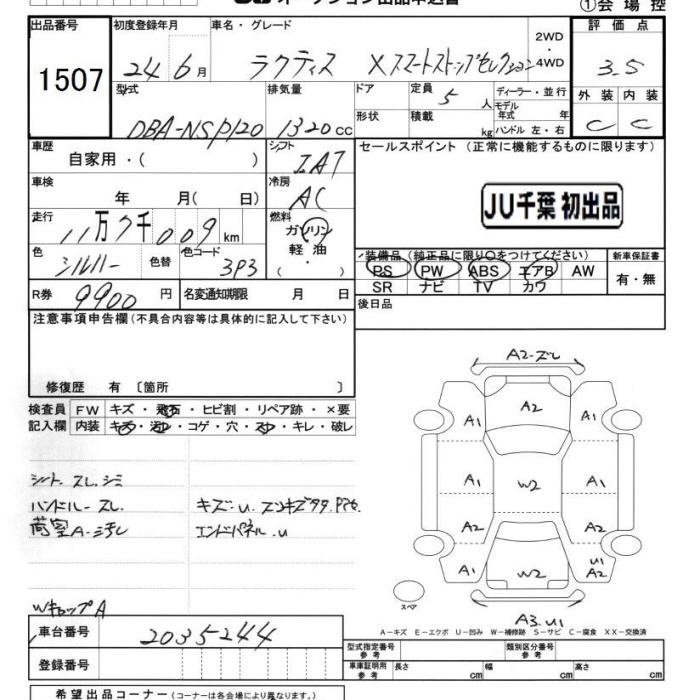 ①会場控
出品番号 初度登録年月 車名・グレード 評価点
1507 24 6月 ラクティス Xスマートストップセレクション 2WD・4WD 3.5
型式 排気量 ドア 定員 ディーラー・並行 外装 内装
DBA-NSP120 1320cc 5人 モデル年式 年 C C
形状 積載 kg ハンドル 左・右
車歴 シフト セールスポイント (正常に機能するものに限ります)
自家用・( ) IAT
車検 冷房
年 月( 日) AC JU千葉 初出品
走行 燃料
11万7千009km ガソリン
軽・油
( ・ )
色 色替 色コード 装備品 (純正品に限り○をつけてください) 新車保証書
シルバー 3P3 PS PW ABS エアB AW 有・無
SR ナビ TV カワ
R券 9900円 名変通知期限 月 日 後日品
注意事項申告欄(不具合内容等は具体的に記入して下さい)
修復歴 有 〔箇所 〕
検査員 FW キズ・飛石・ヒビ割・リペア跡・×要
記入欄 内装 キズ・汚レ・コゲ・穴・スレ・キレ・破レ
シート スレ.シミ
ハンドル-スレ. キズ・U.
荷室 A-汚レ エンドパネル.U
WキャップA
A2-ズレ
A2
A1 A1
A1 W2 A1
A2 A2
A1 W2 U1 A2
スペア
A3.U1
A-キズ E-エクボ U-凹み W-補修跡 S-サビ C-腐食 XX-交換済
車台番号 2035244
型式指定番号 参考 類別区分番号 参考
登録番号 車庫証明用 参考 長さ cm 幅 cm 高さ cm
希望出品コーナー(コーナーは各会場により異なります。)